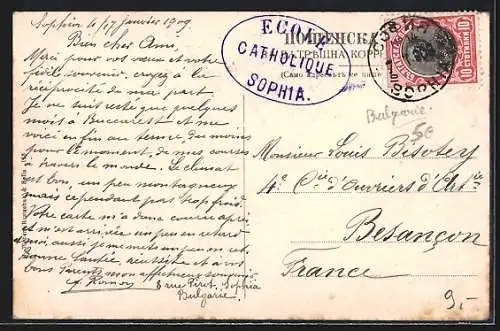 Sophia le 17 janvier 1909.
Bien cher Ami,
Merci pour vos vœux et votre
fidèle souvenir, croyez à la
réciprocité de ma part
Je ne suis resté que quelques
mois à Bucarest et me
voici enfin au terme du moins
pour le moment, de mes courses
à travers le monde. Le climat
est bon, un peu montagneux
mais cependant pas trop froid.
Votre carte m'a donc couru après
et m'est arrivée un peu en retard
moi, aussi je me mets un peu en ret.
Bonne Santé, réussite et à vos
bons Parents mon affectueux souvenir
8 rue Pirot, Sophia
Bulgarie
ECOLE
CATHOLIQUE
SOPHIA.
ПОЩЕНСКА
(Само адресътъ се пише
10 СТОТИНКИ 10
Bulgarie
5c
Monsieur Louis Bisotey
4e Cie d'Ouvriers d'Artie
Besançon
France
9,-